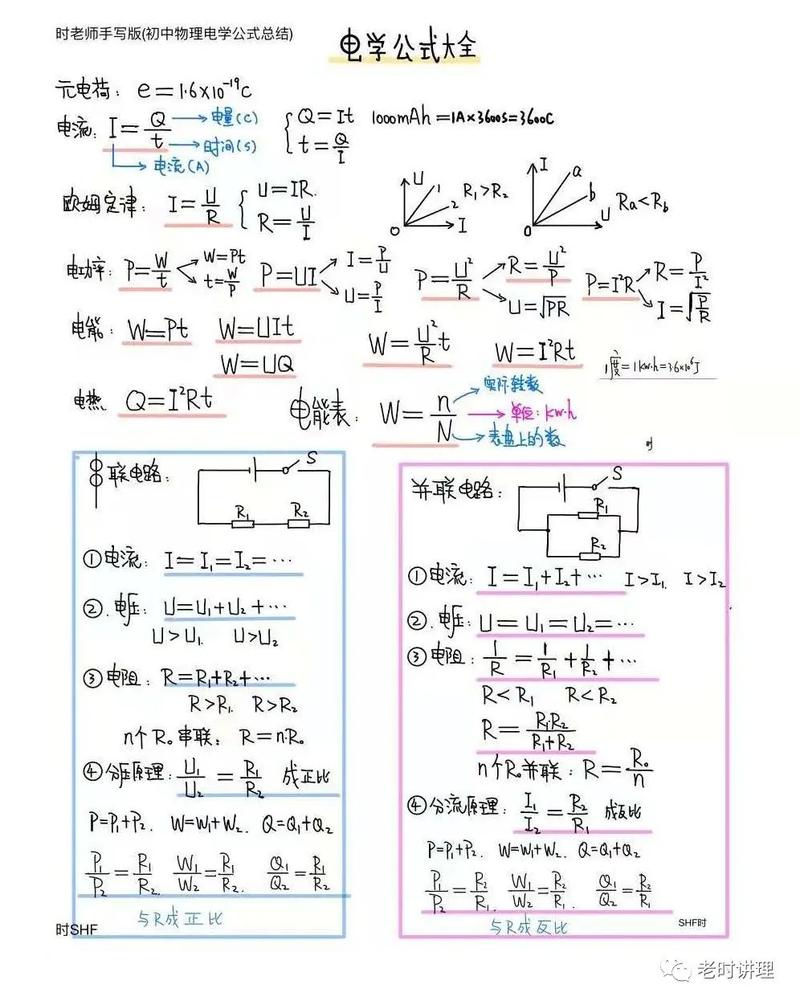 时老师手写版(初中物理电学公式总结)
电学公式大全
元电荷: e=1.6×10⁻¹⁹C
电流: I=Q/t →电量(C) →时间(s) →电流(A) { Q=It t=Q/I 1000mAh=1A×3600S=3600C
欧姆定律: I=U/R { U=IR. R=U/I U 1 2 0 I R₁>R₂ I a b 0 U Ra<Rb
电功率: P=W/t W=Pt t=W/P P=UI I=P/U U=P/I P=U²/R R=U²/P U=√PR P=I²R R=P/I² I=√P/R
电能: W=Pt W=UIt W=U²/R t W=I²Rt
W=UQ 1度=1kw·h=3.6×10⁶J
电热 Q=I²Rt 电能表: W=n/N →实际转数 →单位:kw·h →表盘上的数
时
串联电路: S R₁ R₂
①电流: I=I₁=I₂=…
②.电压: U=U₁+U₂+…
U>U₁. U>U₂
③电阻: R=R₁+R₂+…
R>R₁. R>R₂
n个R₀串联: R=nR₀
④分压原理: U₁/U₂=R₁/R₂ 成正比
P=P₁+P₂. W=W₁+W₂. Q=Q₁+Q₂
P₁/P₂=R₁/R₂ W₁/W₂=R₁/R₂. Q₁/Q₂=R₁/R₂
与R成正比
时SHF
并联电路: S R₁ R₂
①电流: I=I₁+I₂+… I>I₁. I>I₂
②.电压: U=U₁=U₂=…
③电阻: 1/R=1/R₁+1/R₂+…
R<R₁ R<R₂
R=R₁R₂/R₁+R₂
n个R₀并联: R=R₀/n
④分流原理: I₁/I₂=R₂/R₁ 成反比
P=P₁+P₂. W=W₁+W₂. Q=Q₁+Q₂
P₁/P₂=R₂/R₁ W₁/W₂=R₂/R₁. Q₁/Q₂=R₂/R₁
与R成反比
SHF时
老时讲理